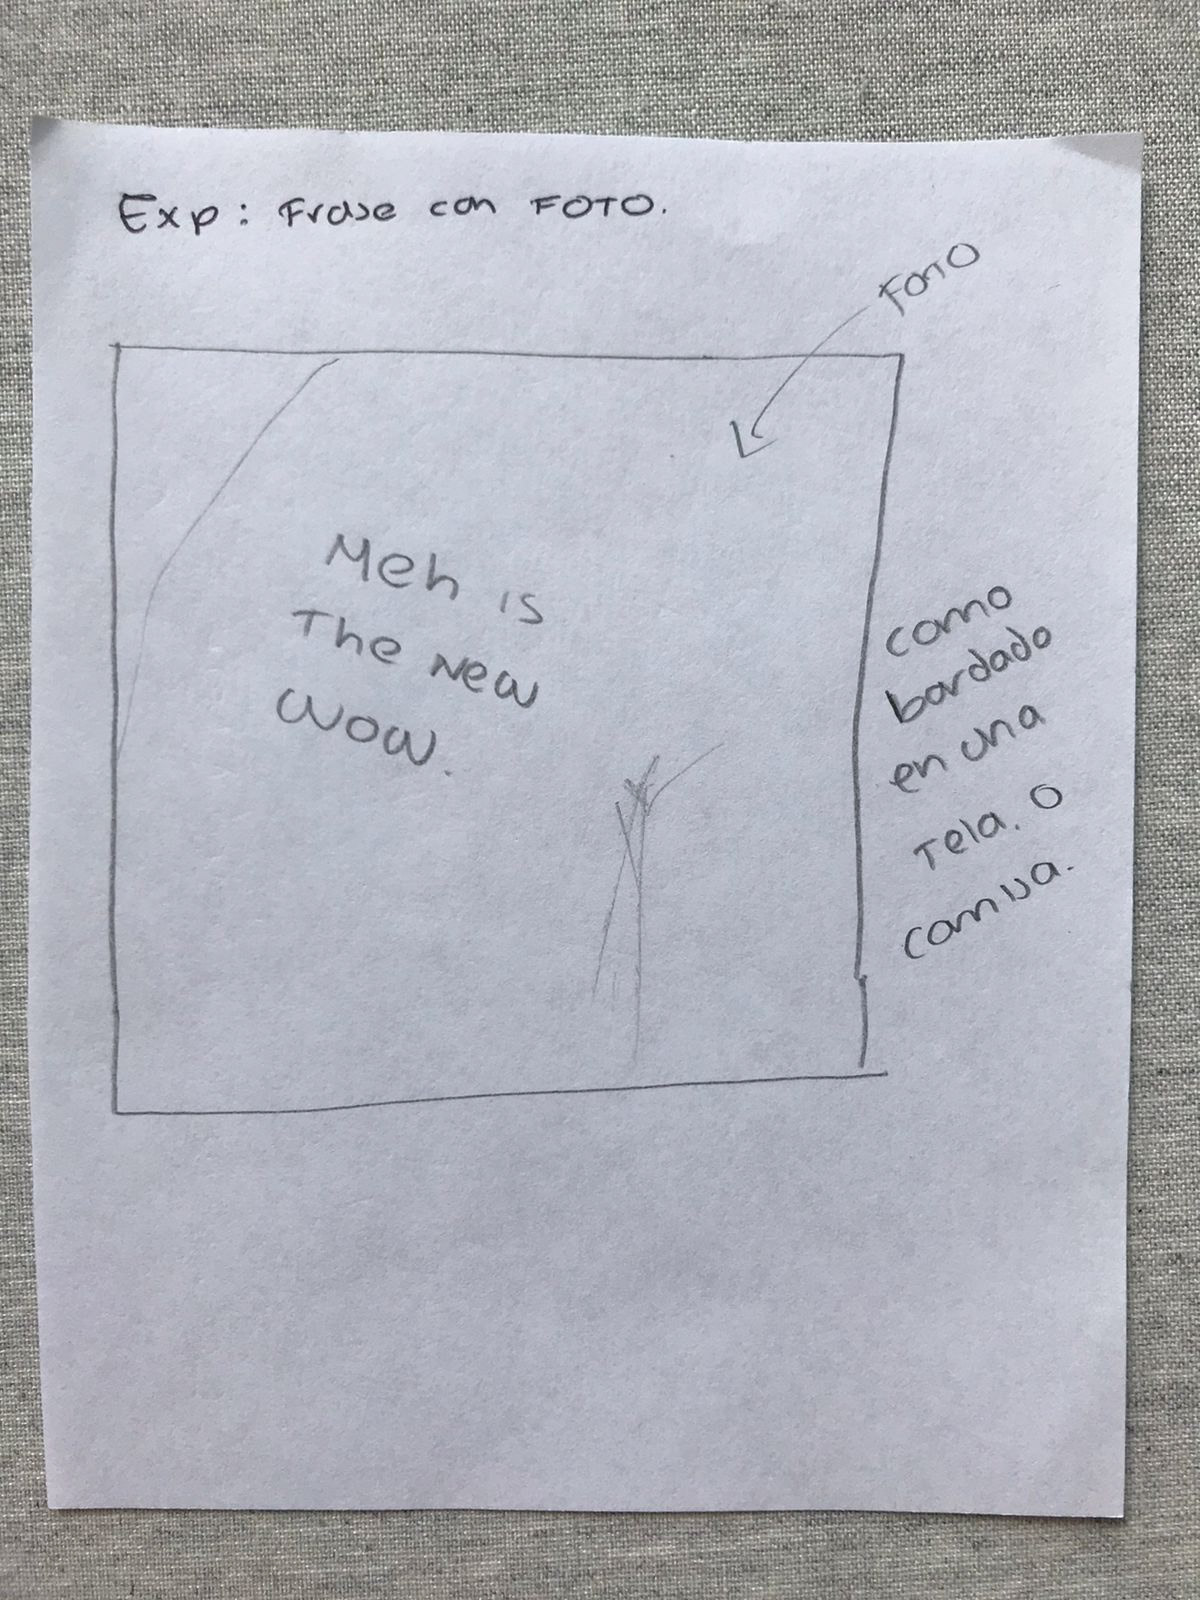 Exp: Frase con FOTO.
FOTO
Meh is
The New
WOW.
como
bordado
en una
Tela. O
camisa.